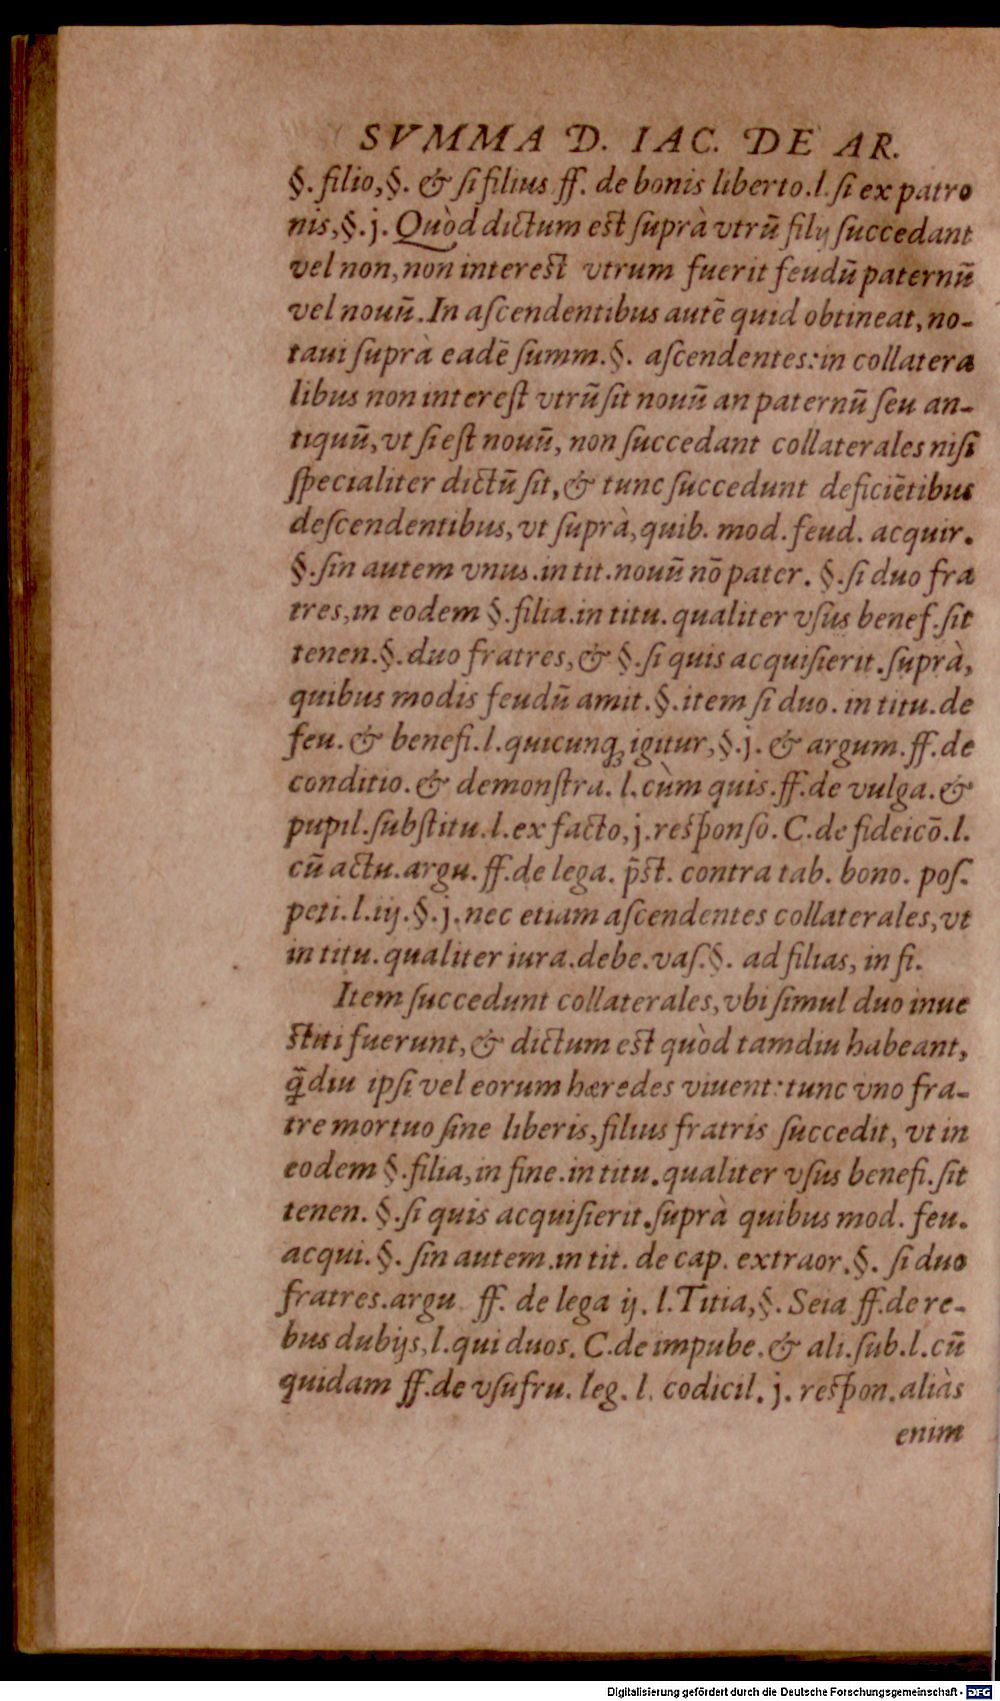 SVMMA D. IAC. DE AR.
§. filio, §. & ſi filius ff. de bonis liberto. l. ſi ex patro
nis, §. j. Quòd dictum eſt ſuprà vtrũ filij ſuccedant
vel non, non intereſt vtrum fuerit feudũ paternũ
vel nouũ. In aſcendentibus autẽ quid obtineat, no-
taui ſuprà eadẽ ſumm. §. aſcendentes: in collatera
libus non intereſt vtrũ ſit nouũ an paternũ ſeu an-
tiquũ, vt ſi eſt nouũ, non ſuccedant collaterales niſi
ſpecialiter dictũ ſit, & tunc ſuccedunt deficiẽtibus
deſcendentibus, vt ſuprà, quib. mod. feud. acquir.
§. ſin autem vnus. in tit. nouũ nõ pater. §. ſi duo fra
tres, in eodem §. filia. in titu. qualiter vſus benef. ſit
tenen. §. duo fratres, & §. ſi quis acquiſierit. ſuprà,
quibus modis feudũ amit. §. item ſi duo. in titu. de
feu. & benefi. l. quicunq; igitur, §. j. & argum. ff. de
conditio. & demonſtra. l. cùm quis. ff. de vulga. &
pupil. ſubſtitu. l. ex facto, j. reſponſo. C. de fideicõ. l.
cũ actu. argu. ff. de lega. p̃ſt. contra tab. bono. poſ.
peti. l. iij. §. j. nec etiam aſcendentes collaterales, vt
in titu. qualiter iura. debe. vaſ. §. ad filias, in fi.
Item ſuccedunt collaterales, vbi ſimul duo inue
ſtiti fuerunt, & dictum eſt quòd tamdiu habeant,
q̃diu ipſi vel eorum hæredes viuent: tunc vno fra-
tre mortuo ſine liberis, filius fratris ſuccedit, vt in
eodem §. filia, in fine. in titu. qualiter vſus benefi. ſit
tenen. §. ſi quis acquiſierit. ſuprà quibus mod. feu.
acqui. §. ſin autem. in tit. de cap. extraor. §. ſi duo
fratres. argu. ff. de lega ij. l. Titia, §. Seia ff. de re-
bus dubijs, l. qui duos. C. de impube. & ali. ſub. l. cũ
quidam ff. de vſufru. leg. l. codicil. j. reſpon. aliàs
enim
Digitalisierung gefördert durch die Deutsche Forschungsgemeinschaft - DFG